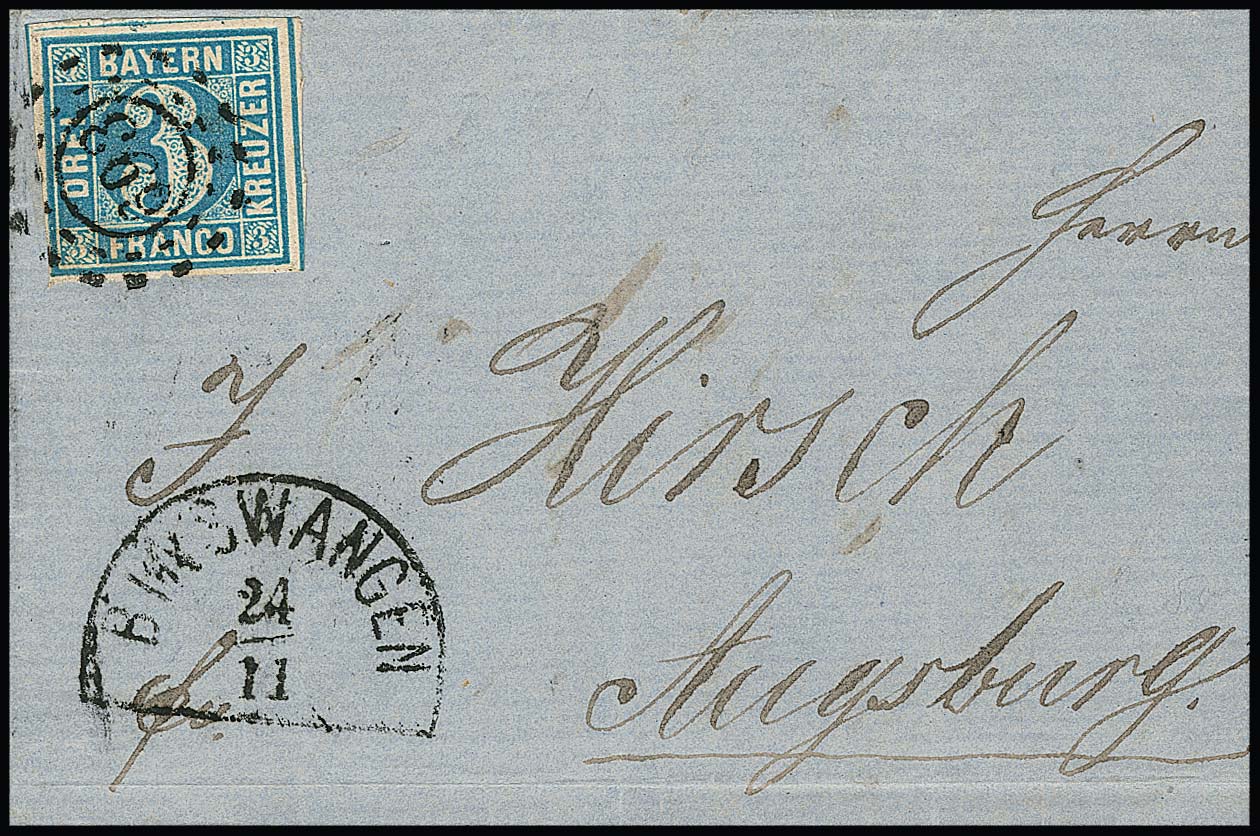 3 BAYERN 3
DREI 3 KREUZER
3 FRANCO 3
Herrn
J Hirsch
BINSWANGEN
24
11
fr.
Augsburg.